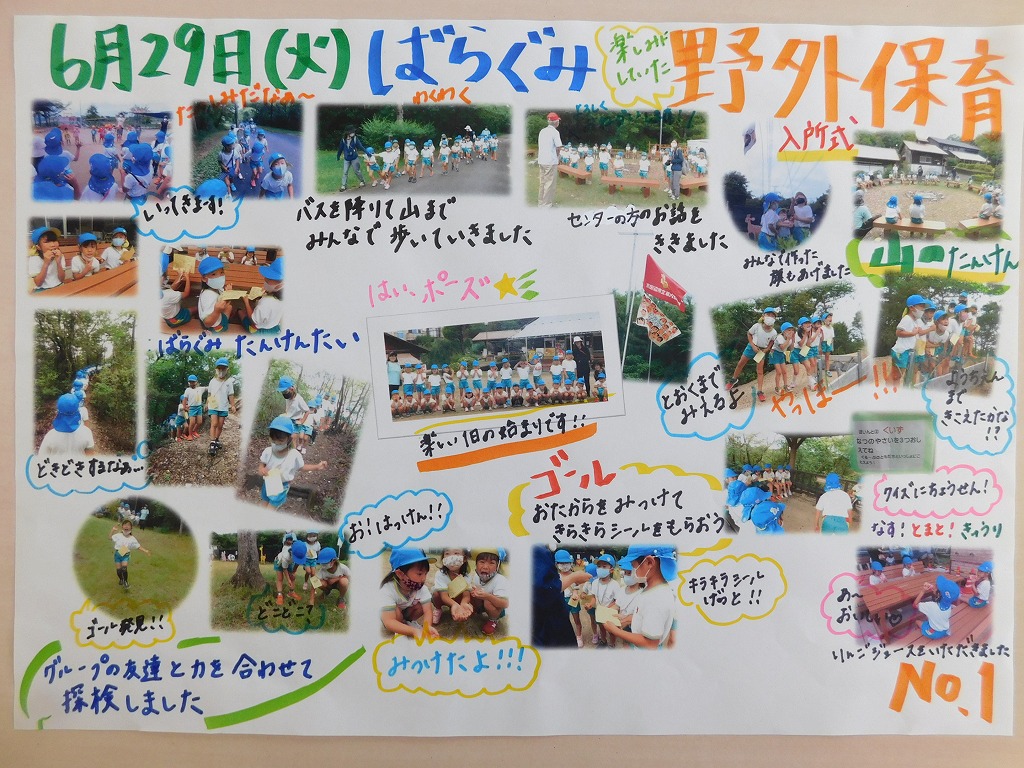 6月29日(火)ばらぐみ
楽しみに
していた
野外保育
たのしみだなぁ〜
わくわく
入所式
いってきます!
バスを降りて山まで
みんなで歩いていきました
センターの方のお話を
ききました
みんなで作った
旗もあげました
山のたんけん
はい、ポーズ
ばらぐみ たんけんたい
とおくまで
みえるよ
やっほー!!!
ようちえん
まで
きこえたかな
!?
楽しい1日の始まりです!!
どきどきするなぁ…
くいず
なつのやさいを3つおし
えてね
クイズにちょうせん!
なす!とまと!きゅうり
ゴール
おたからをみつけて
きらきらシールをもらおう
お!はっけん!!
ゴール発見!!
どこどこ?
みつけたよ!!!
キラキラシール
げっと!!
あ〜
おいしい
りんごジュースをいただきました
グループの友達と力を合わせて
探検しました
No.1